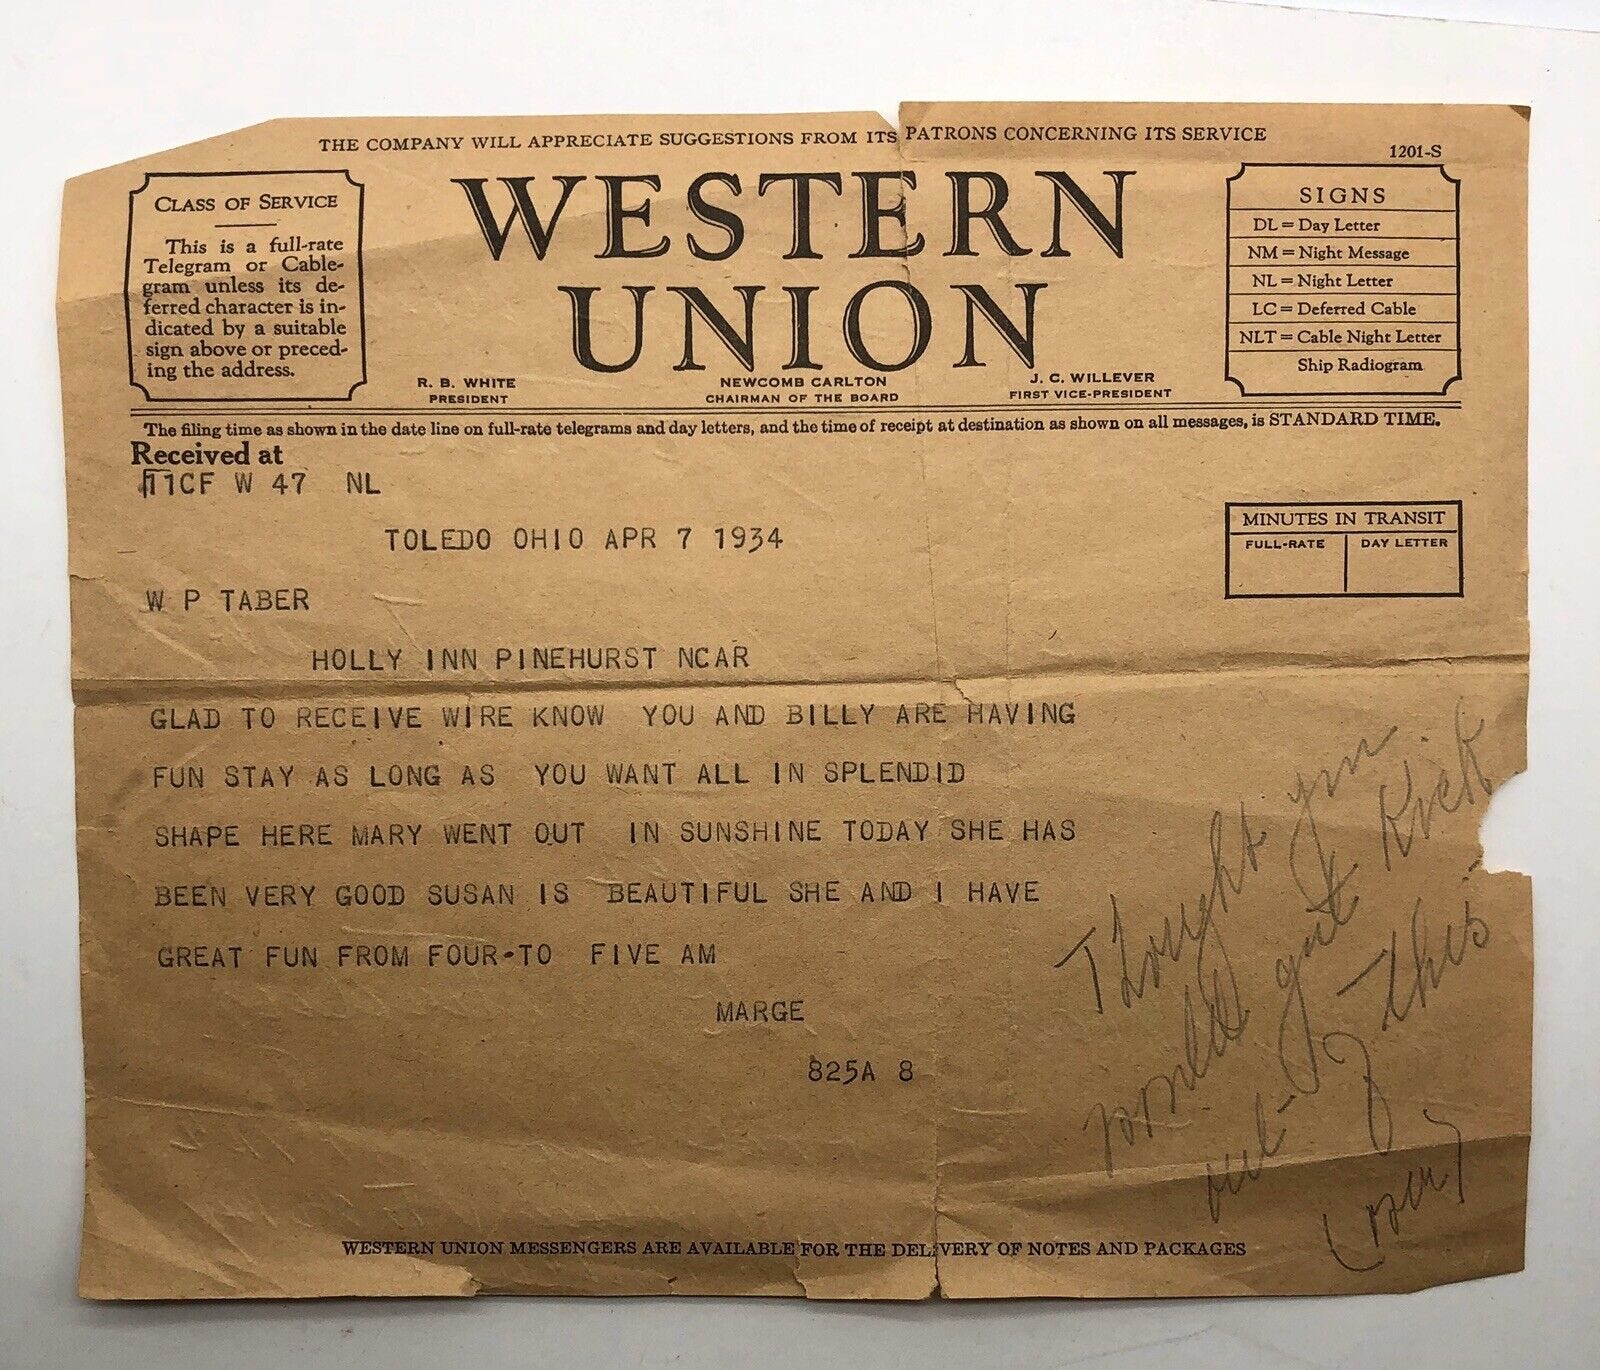 THE COMPANY WILL APPRECIATE SUGGESTIONS FROM ITS PATRONS CONCERNING ITS SERVICE
1201-S
CLASS OF SERVICE
This is a full-rate
Telegram or Cable-
gram unless its de-
ferred character is in-
dicated by a suitable
sign above or preced-
ing the address.
WESTERN
UNION
R. B. WHITE
PRESIDENT
NEWCOMB CARLTON
CHAIRMAN OF THE BOARD
J. C. WILLEVER
FIRST VICE-PRESIDENT
SIGNS
DL = Day Letter
NM = Night Message
NL = Night Letter
LC = Deferred Cable
NLT = Cable Night Letter
Ship Radiogram
The filing time as shown in the date line on full-rate telegrams and day letters, and the time of receipt at destination as shown on all messages, is STANDARD TIME.
Received at
11CF W 47 NL
MINUTES IN TRANSIT
FULL-RATE
DAY LETTER
TOLEDO OHIO APR 7 1934
W P TABER
HOLLY INN PINEHURST NCAR
GLAD TO RECEIVE WIRE KNOW YOU AND BILLY ARE HAVING
FUN STAY AS LONG AS YOU WANT ALL IN SPLENDID
SHAPE HERE MARY WENT OUT IN SUNSHINE TODAY SHE HAS
BEEN VERY GOOD SUSAN IS BEAUTIFUL SHE AND I HAVE
GREAT FUN FROM FOUR-TO FIVE AM
MARGE
825A 8
Thought you
would get kick
out of this
(over)
WESTERN UNION MESSENGERS ARE AVAILABLE FOR THE DELIVERY OF NOTES AND PACKAGES